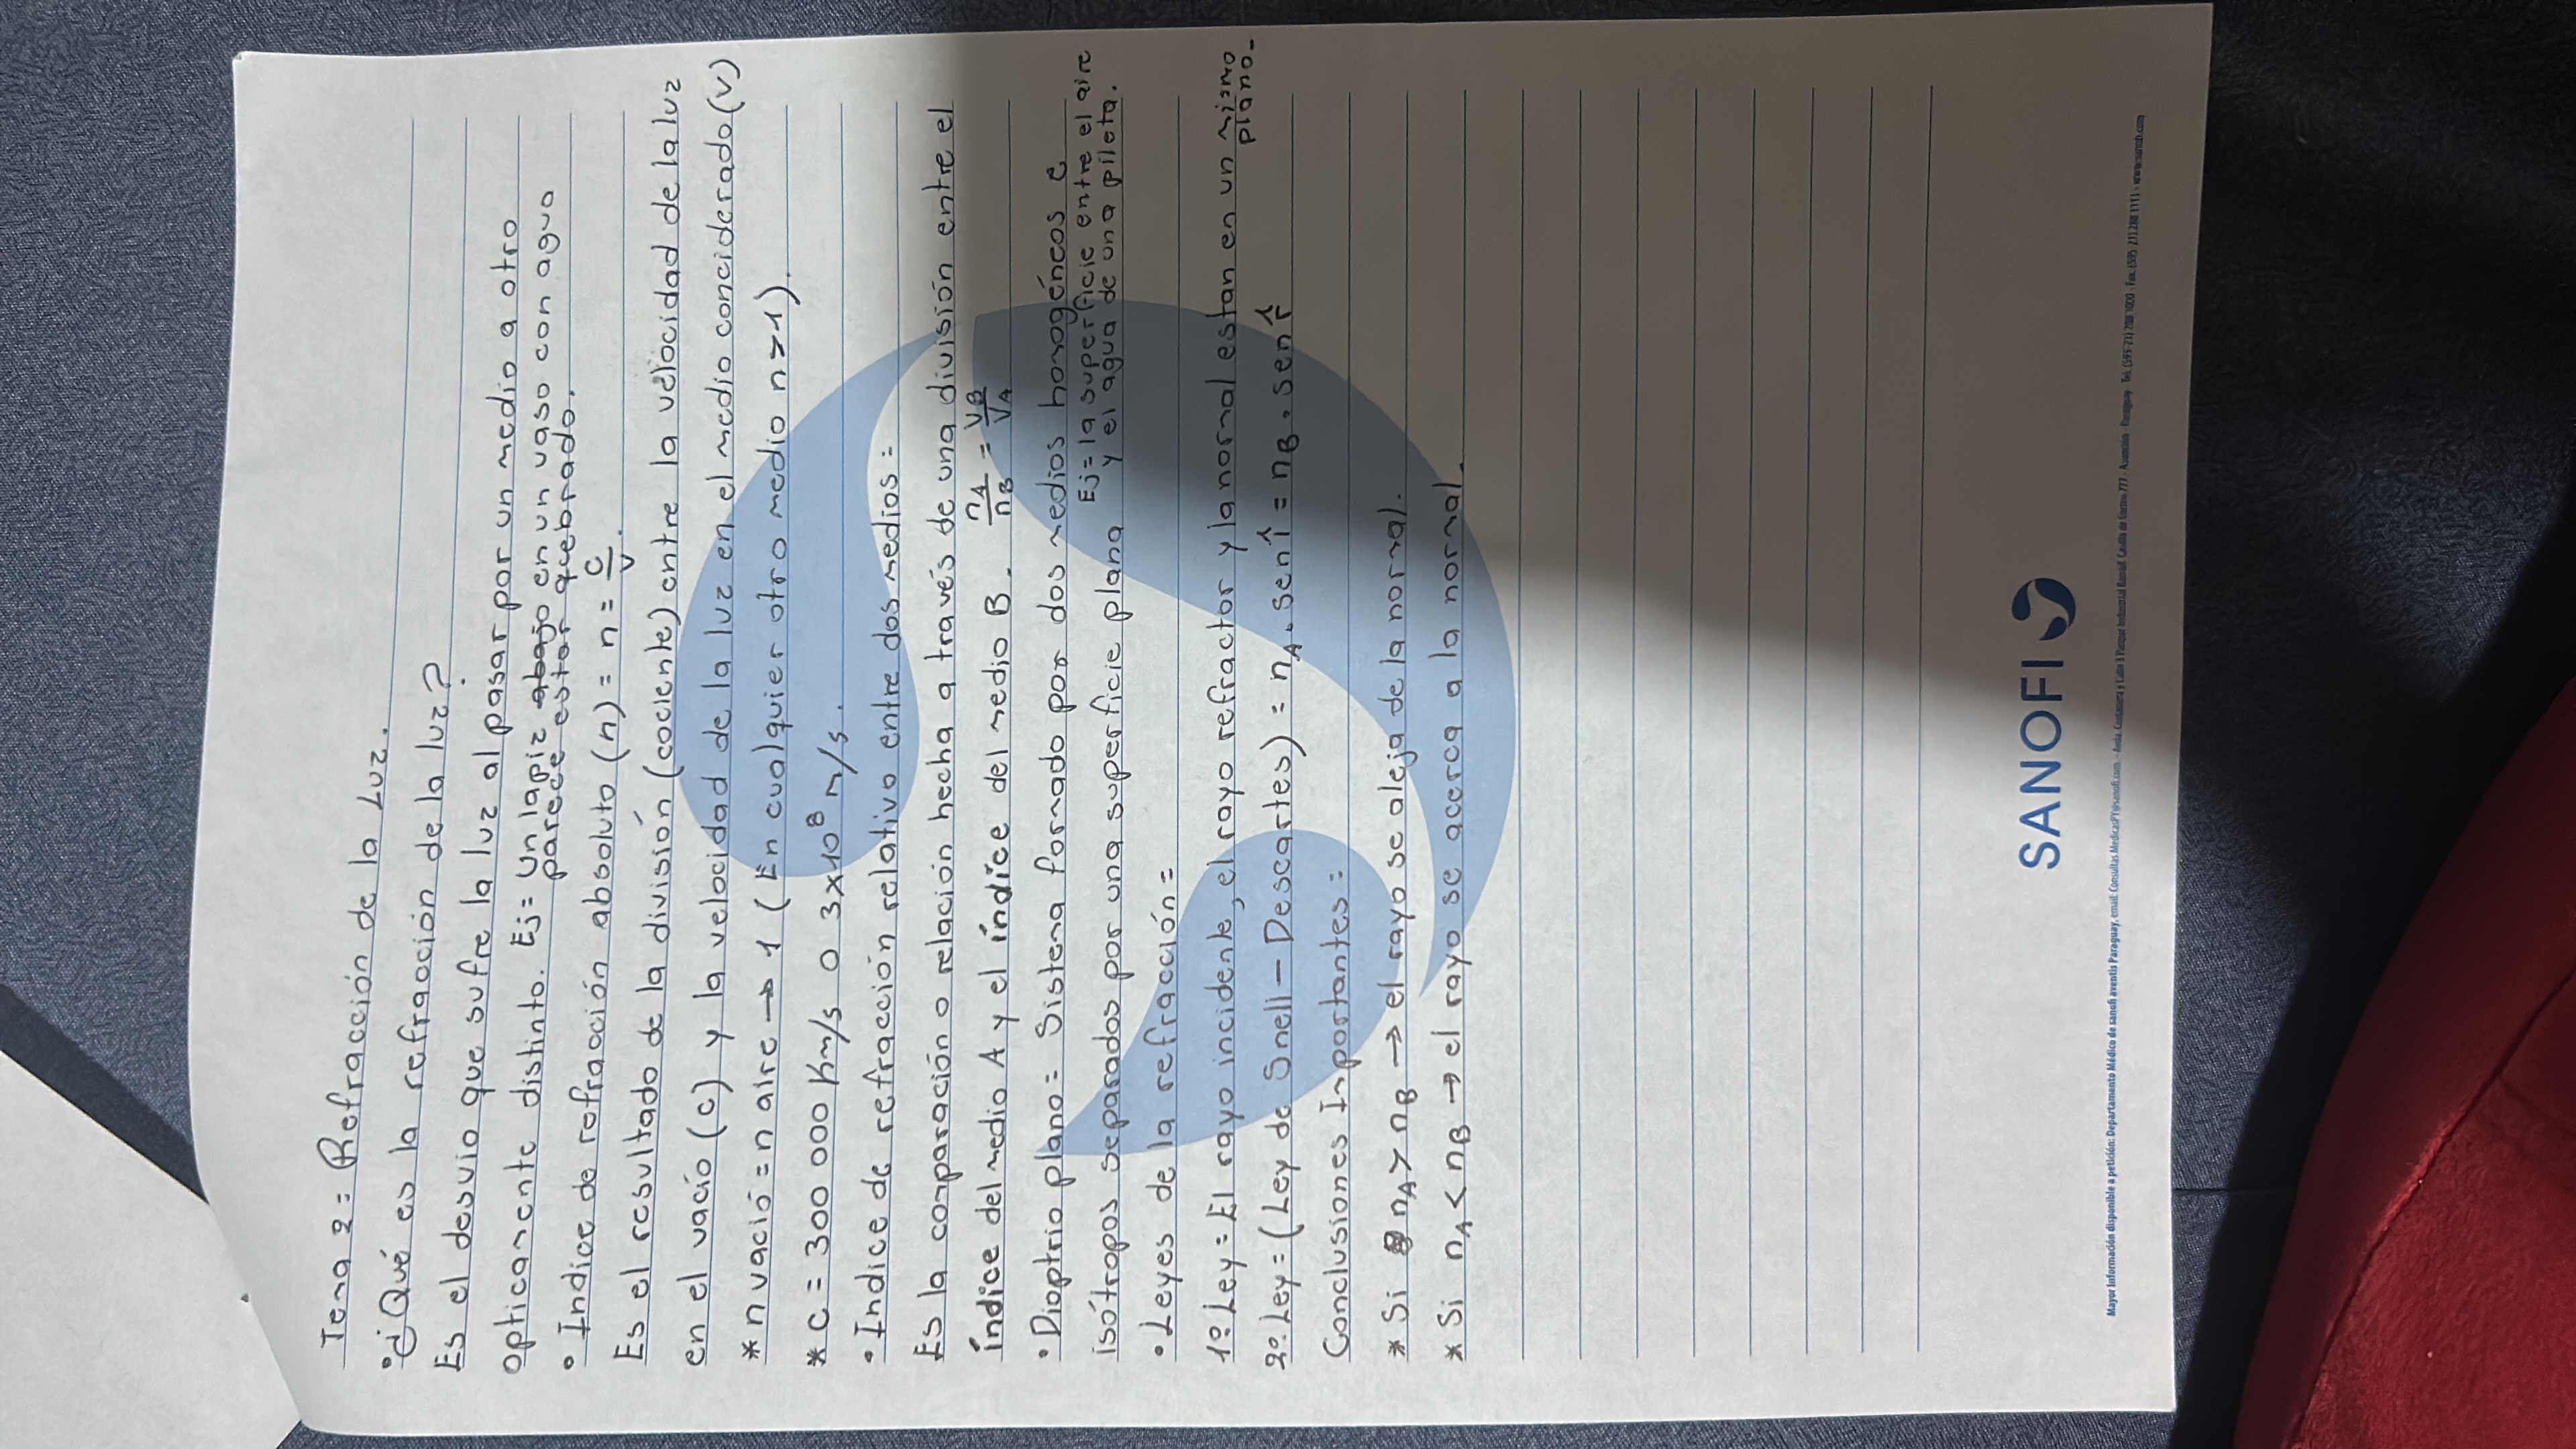 Tema 2: Refracción de la Luz.
• ¿Qué es la refracción de la luz?
Es el desvío que sufre la luz al pasar por un medio a otro
opticamente distinto. Ej: Un lapiz abajo en un vaso con agua
parece estar quebrado.
• Indice de refración absoluto (n) = n = c/v.
Es el resultado de la división (cociente) entre la velocidad de la luz
en el vacío (c) y la velocidad de la luz en el medio conciderado (v)
* n vació = n aire → 1 (En cualquier otro medio n > 1).
* C = 300 000 Km/s o 3x10⁸ m/s.
• Indice de refracción relativo entre dos medios:
Es la comparación o relación hecha a través de una división entre el
índice del medio A y el índice del medio B. nA/nB = VB/VA
• Dioptrio plano = Sistema formado por dos medios homogéneos e
isótropos separados por una superficie plana Ej= la superficie entre el aire
y el agua de una pileta.
• Leyes de la refracción =
1º Ley = El rayo incidente, el rayo refractor y la normal estan en un mismo
plano.
2º Ley = (Ley de Snell - Descartes) = nA . sen î = nB . sen r̂
Conclusiones Importantes =
* Si nA > nB → el rayo se aleja de la normal.
* Si nA < nB → el rayo se acerca a la normal.
SANOFI
Mayor Información disponible a petición: Departamento Médico de sanofi aventis Paraguay, email: Consultas.MedicasPY@sanofi.com